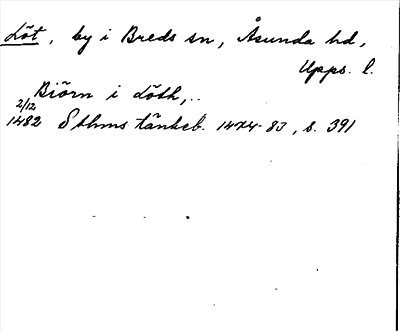 Löt, by i Breds sn, Åsunda hd,
Upps. l.
Biörn i Löth,..
2/12
1482 Sthms tänkeb. 1474-83, s. 391